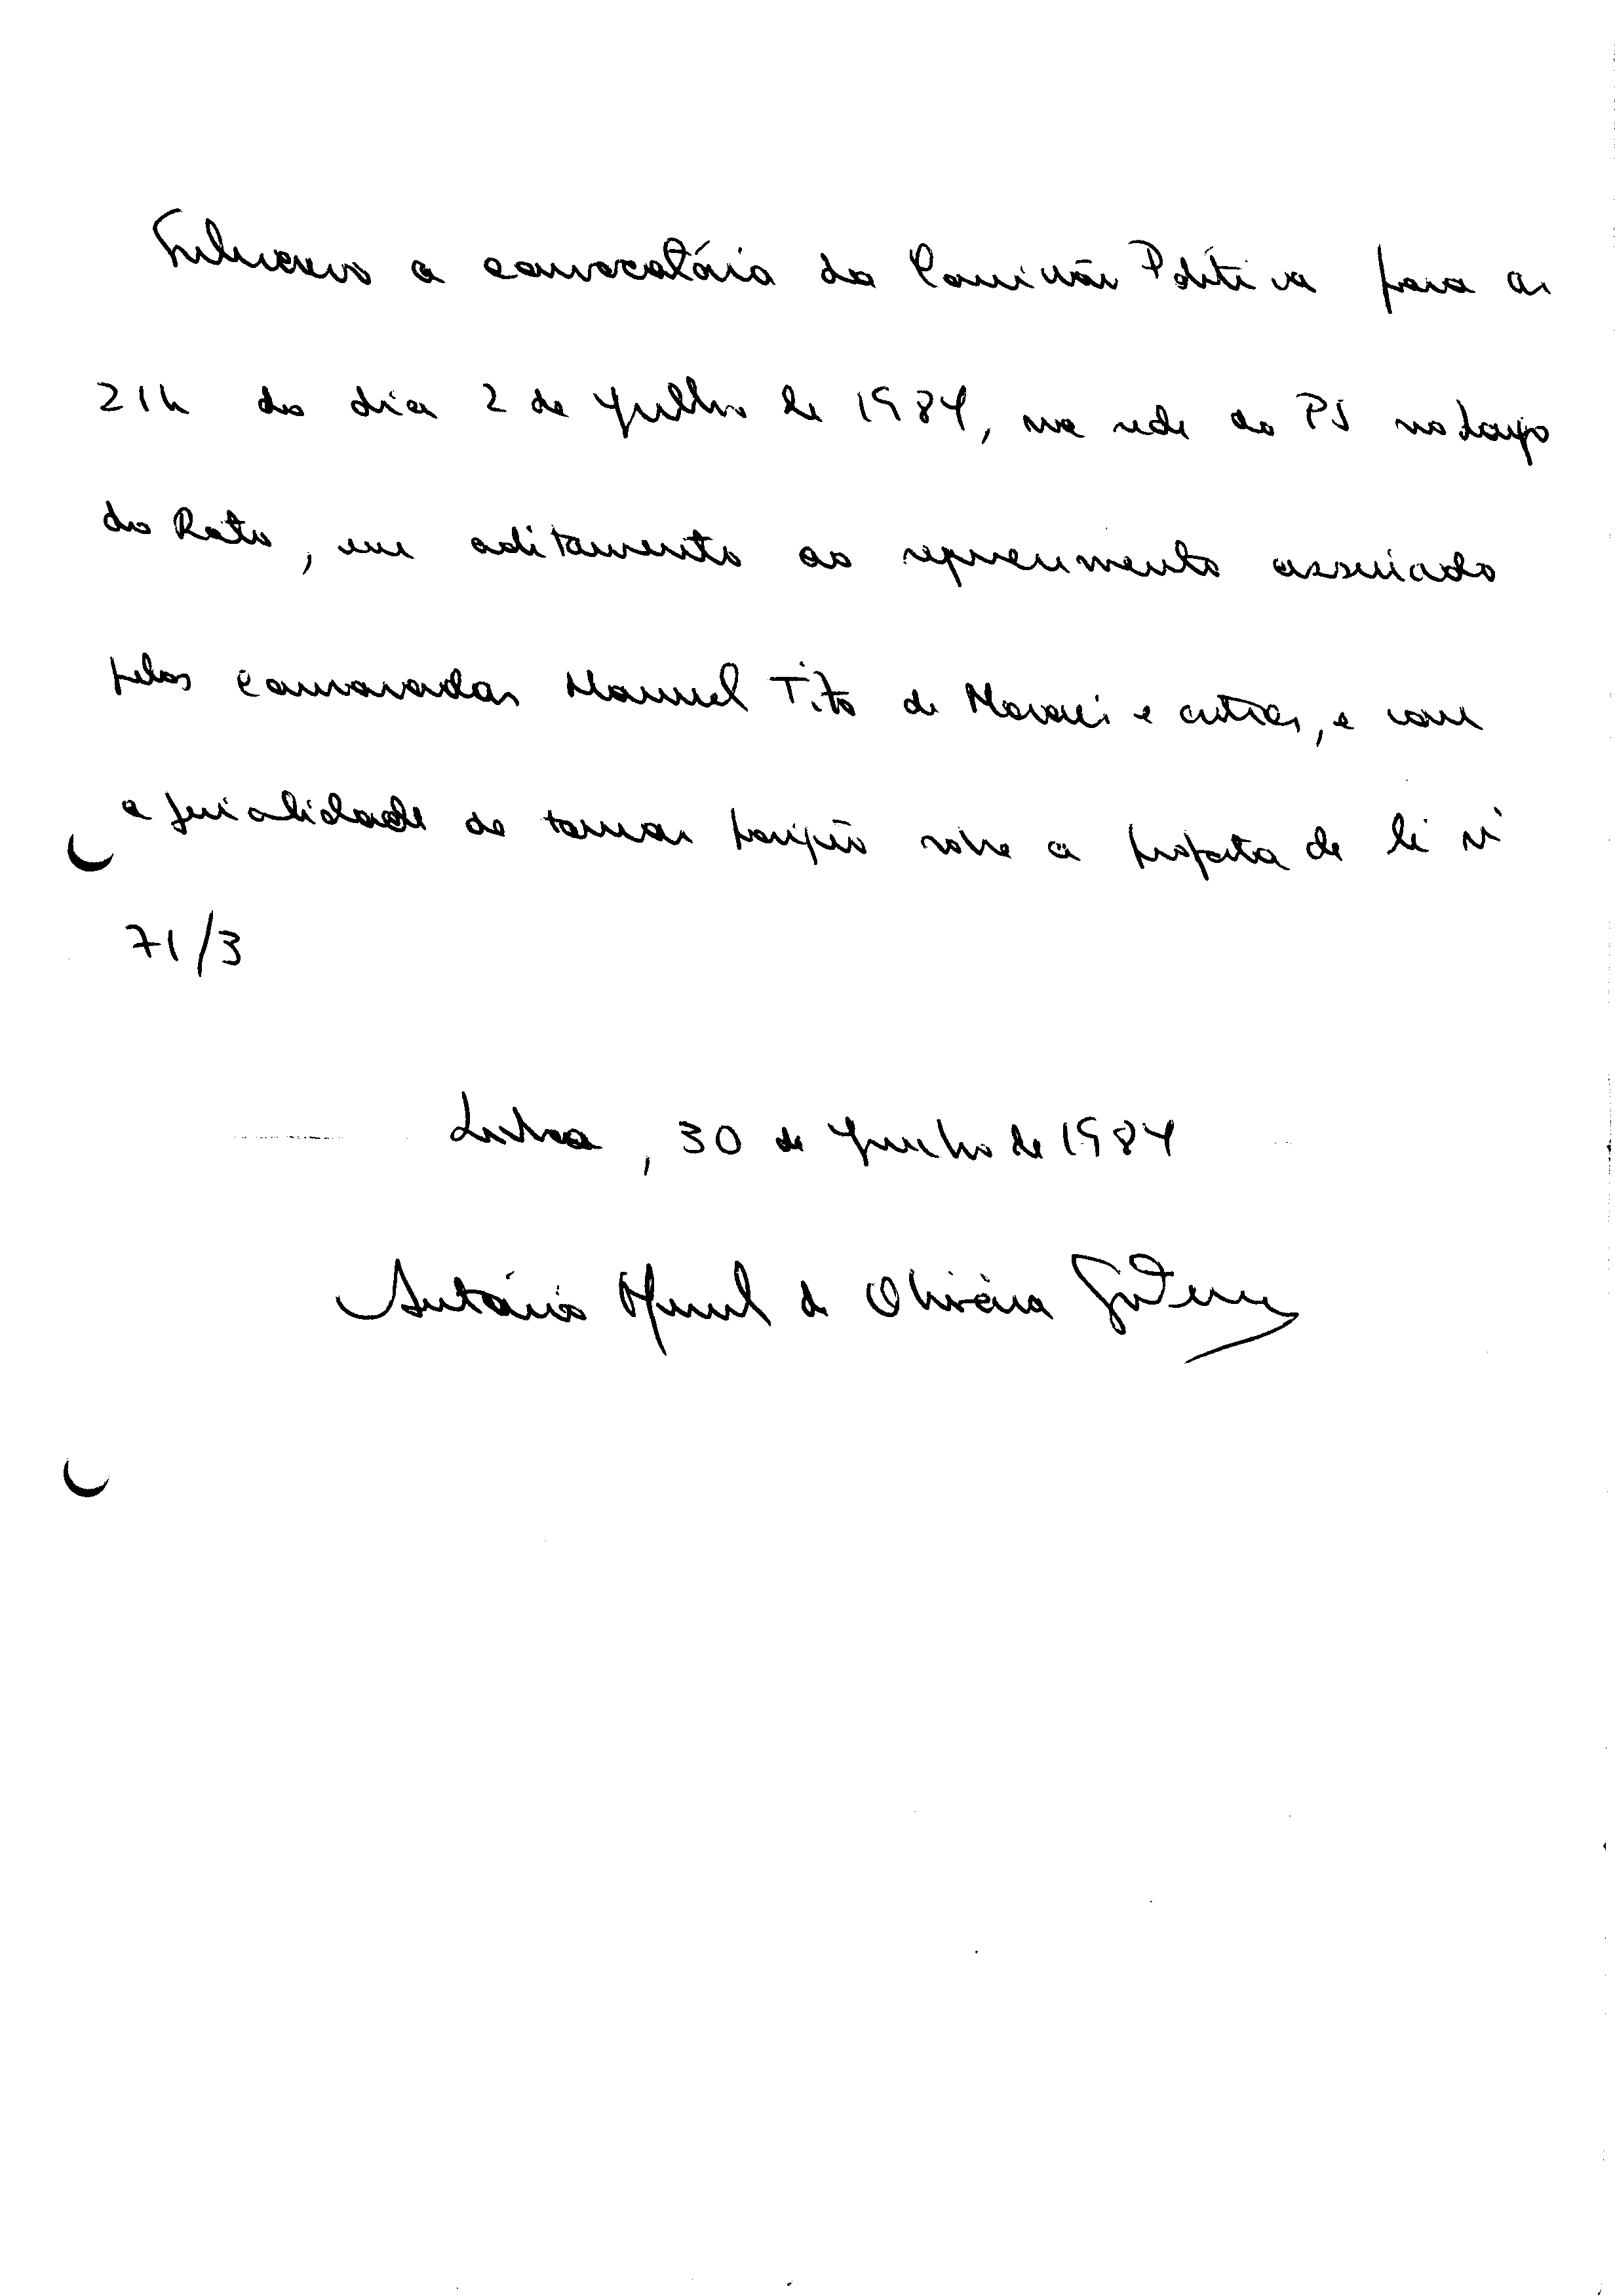 Subscrevo a convocatória da Comissão Política para as
21h do dia 2 de Julho de 1984, na sede do PS no Largo
do Rato, em aditamento ao requerimento assinado
pelos camaradas Manuel Tito de Morais e outros, e com
a finalidade de tomar posição sobre a proposta de lei nº
71/3
Lisboa, 30 de Junho de 1984
António Manuel de Oliveira Guterres